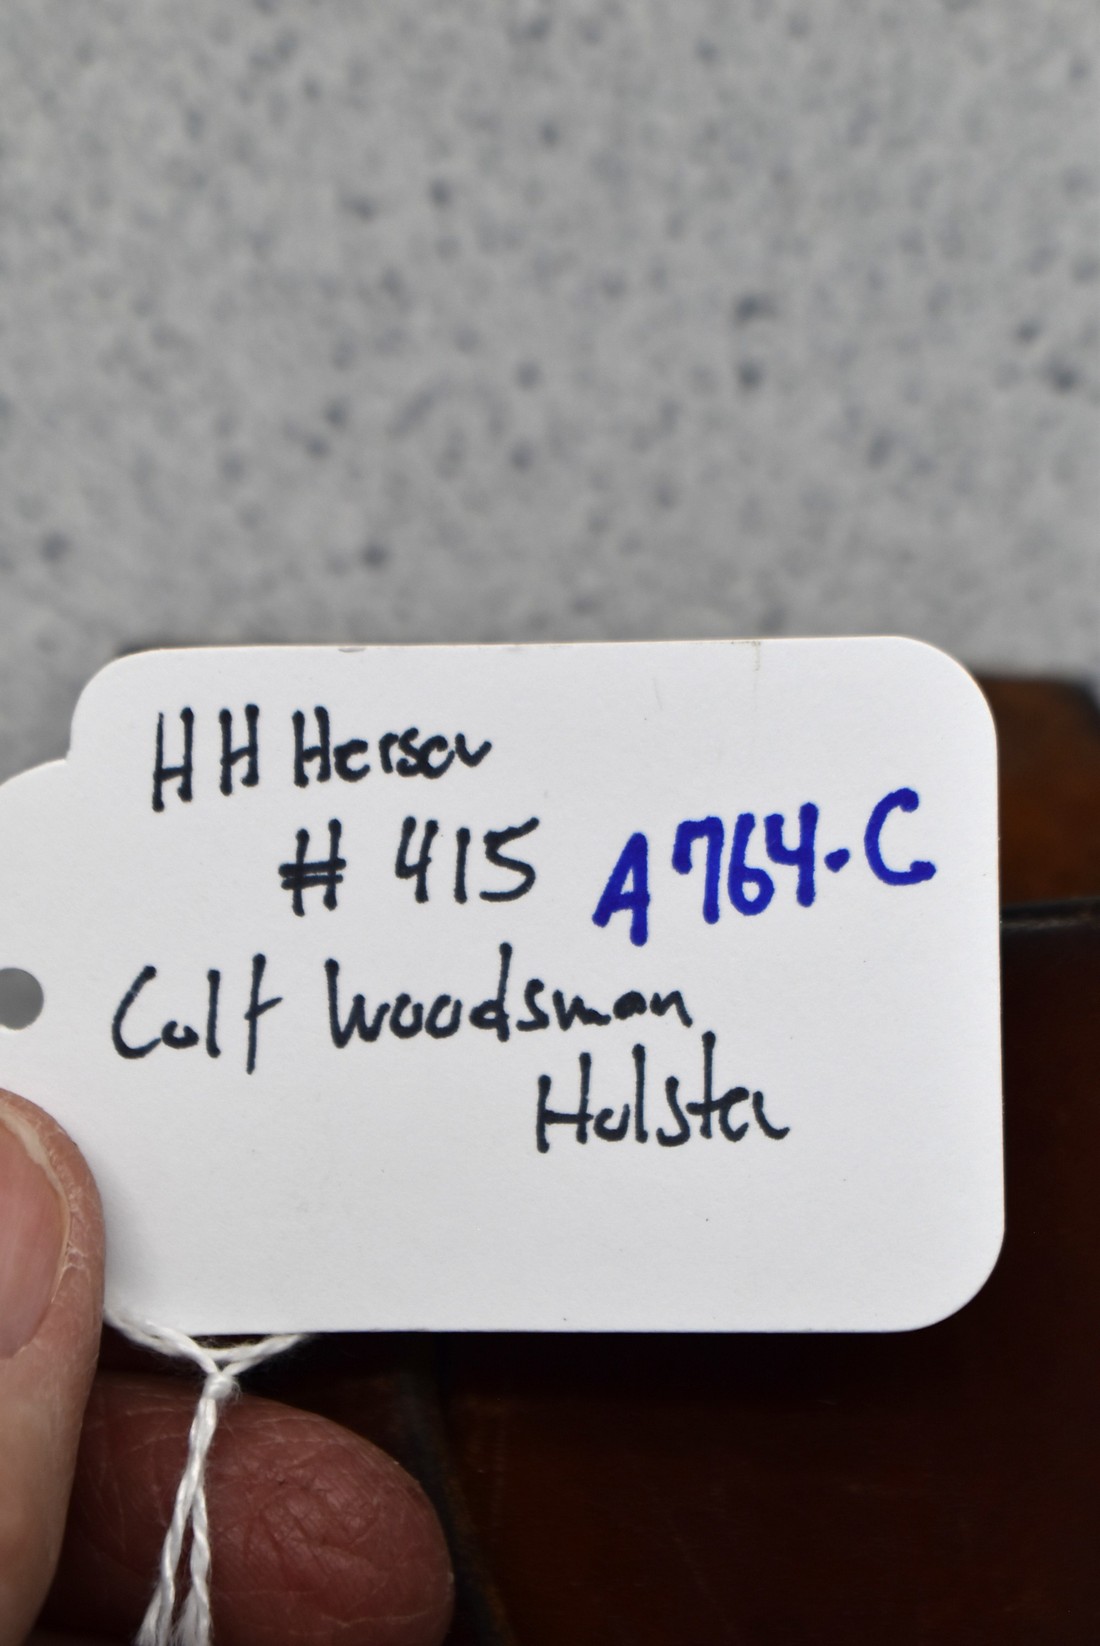 HH Herser
# 415 A764-C
Colt Woodsman
Holster